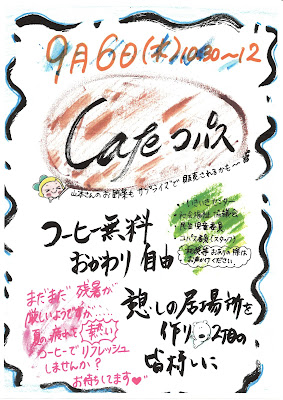 9月6日(木)10:30〜12
Cafe コパス
山本さんのお野菜も サプライズで 販売されるかも〜
コーヒー無料
おかわり自由
まだまだ 残暑が
厳しいようですが
夏の疲れを 熱い
コーヒーでリフレッシュ
しませんか?
お待ちしてます
憩いの居場所を
作り 2丁目の
皆様しに